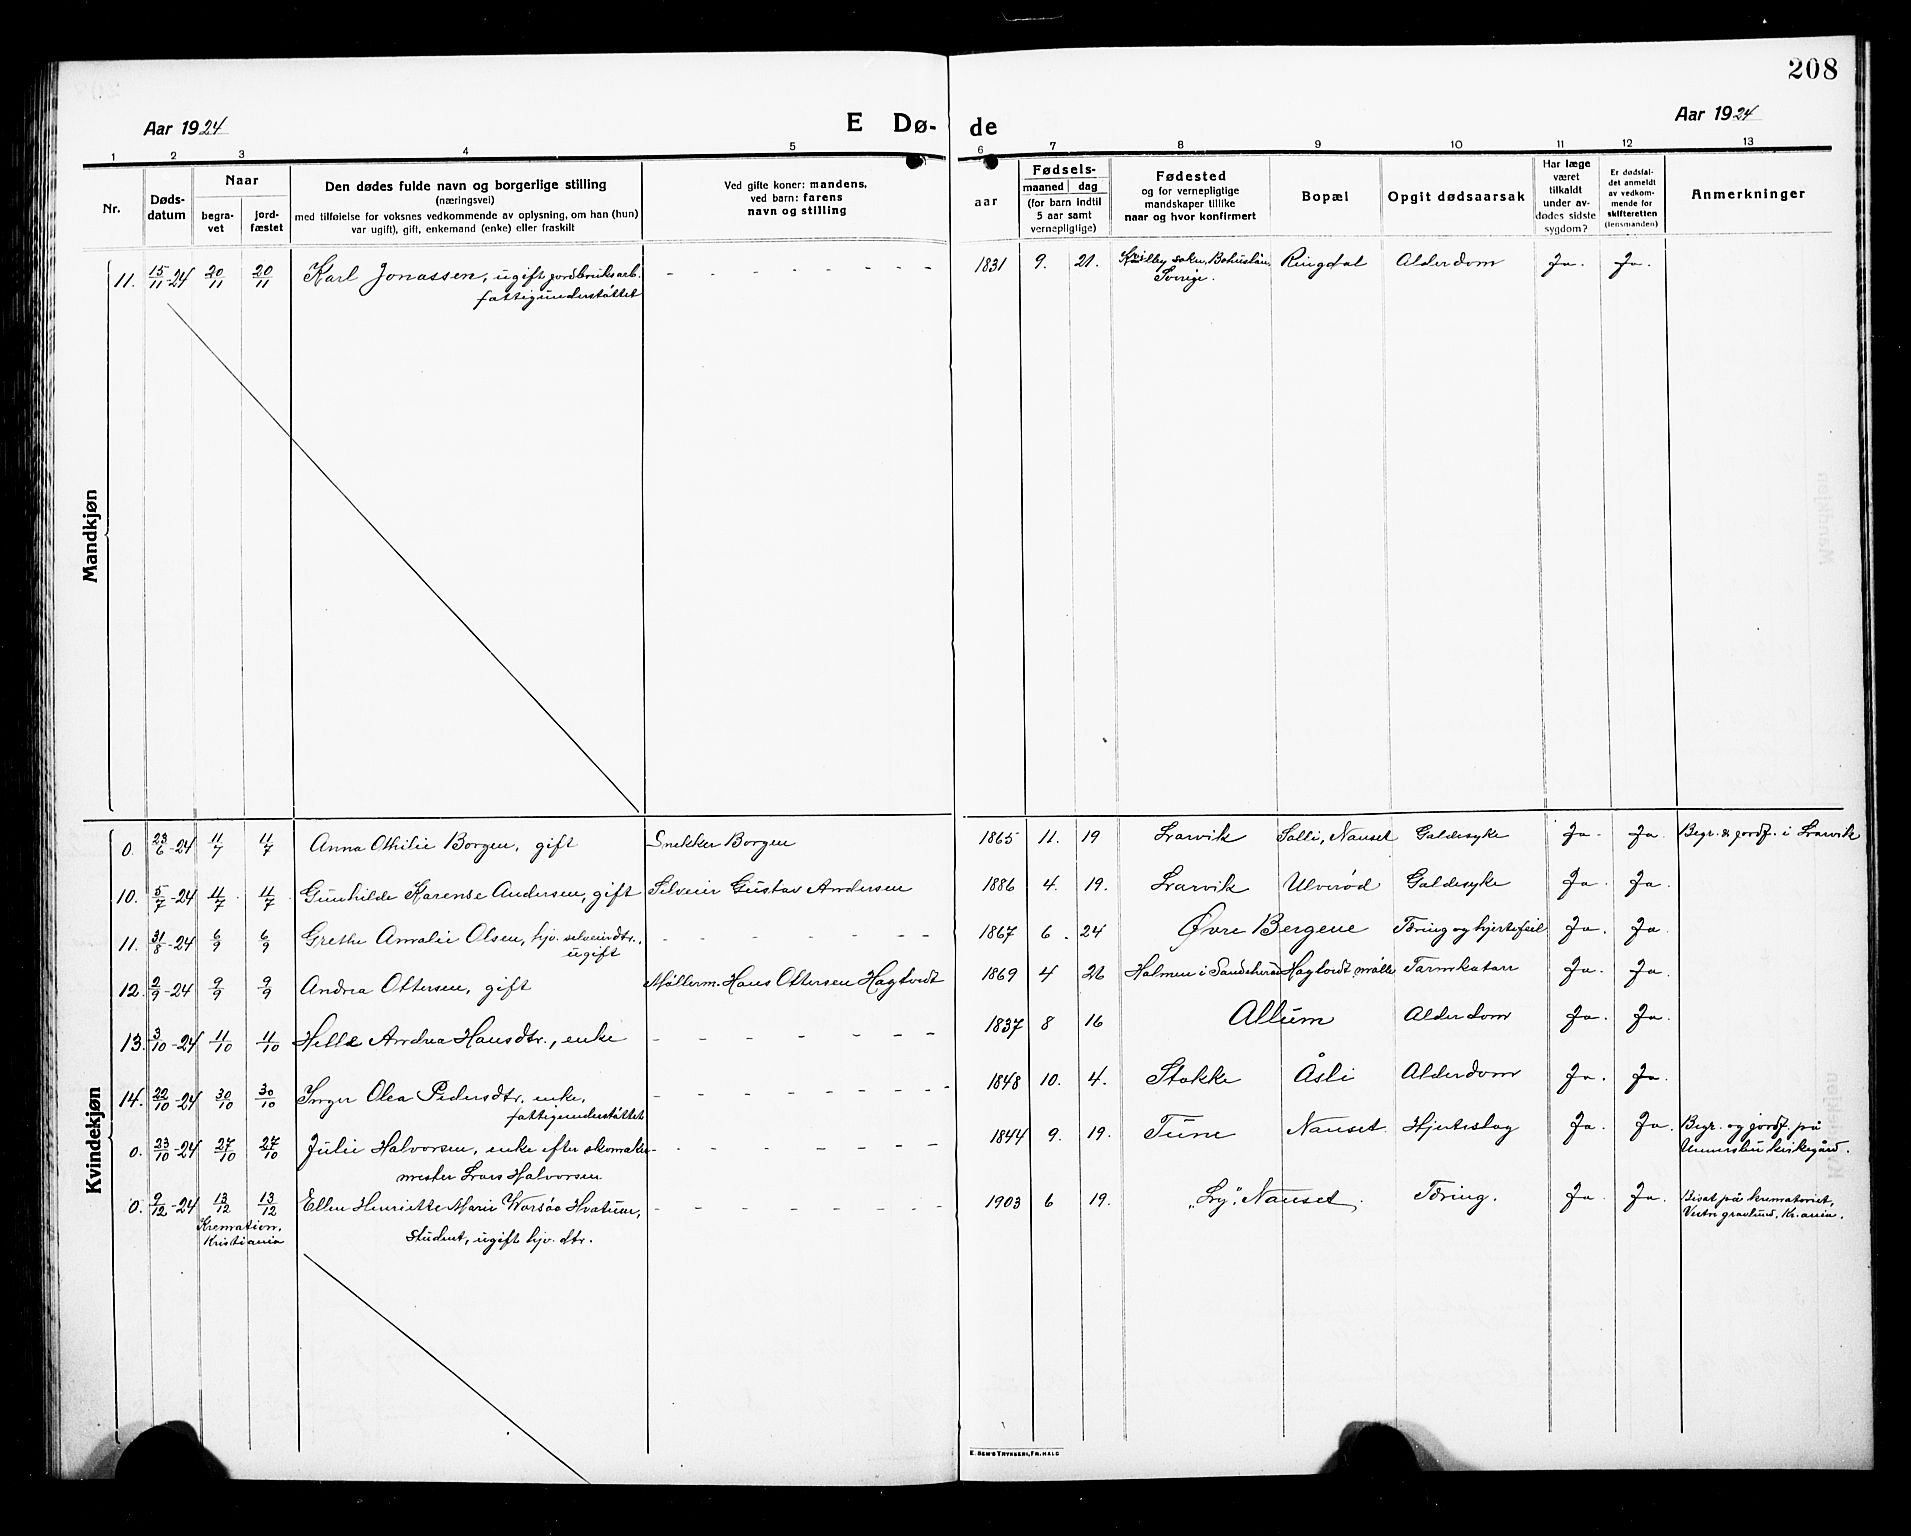 208
Aar 1924
E Dø-
de
Aar 1924
1 2 3 4 5 6 7 8 9 10 11 12 13
Nr.
Døds-
datum
Naar
begra-
vet
jord-
fæstet
Den dødes fulde navn og borgerlige stilling
(næringsvei)
med tilføielse for voksnes vedkommende av oplysning, om han (hun)
var ugift), gift, enkemand (enke) eller fraskilt
Ved gifte koner: mandens,
ved barn: farens
navn og stilling
aar
Fødsels-
maaned dag
(for barn indtil
5 aar samt
vernepligtige)
Fødested
og for vernepligtige
mandskaper tillike
naar og hvor konfirmert
Bopæl
Opgit dødsaarsak
Har læge
været
tilkaldt
under av-
dødes sidste
sygdom?
Er dødsfal-
det anmeldt
av vedkom-
mende for
skifteretten
(lensmanden)
Anmerkninger
Mandkjøn
11. 15/11-24 20/11 20/11 Karl Jonassen, ugift jordbruksarb. - - - - - - - 1831 9. 21. Kville sokn, Bohuslän, Ringdal Alderdom Ja. Ja.
fattigunderstøttet Sverige.
Kvindekjøn
0. 23/6-24 11/7 11/7 Anna Othilie Borgen, gift Snekker Borgen 1865 11. 19 Larvik Solli, Nanset Galdesyke Ja. Ja. Begr. & jordf. i Larvik
10. 5/7-24 11/7 11/7 Gunhilde Karense Andersen, gift Selveier Gustav Andersen 1886 4. 19. Larvik Ulverød Galdesyke Ja. Ja.
11. 31/8-24 6/9 6/9 Grethe Amalie Olsen, hjv. selveierdtr., - - - - - - - 1867 6. 24 Øvre Bergene Tæring og hjertefeil Ja. Ja.
ugift
12. 2/9-24 9/9 9/9 Andrea Ottersen, gift Møllerm. Hans Ottersen Hagtvedt 1869 4 26 Holmen i Sandeherad Hagtvedt mølle Tarmkatarr Ja. Ja.
13. 3/10-24 11/10 11/10 Helle Andrea Hansdtr., enke - - - - - - - 1837 8 16 Allum Alderdom Ja. Ja.
14. 22/10-24 30/10 30/10 Inger Olea Pedersdtr. enke, - - - - - - - 1848 10. 4. Stokke Åsli Alderdom Ja. Ja.
fattigunderstøttet
0. 23/10-24 27/10 27/10 Julie Halvorsen, enke efter skomaker- - - - - - - - 1844 9. 19. Tune Nanset Hjerteslag Ja. Ja. Begr. og jordf. på
mester Lars Halvorsen Undersbu kirkegård.
0. 9/12-24 13/12 13/12 Ellen Henriette Marie Warsøe Hvatum, - - - - - - - 1903 6 19. "Ly", Nanset. Tæring. Ja. Ja. Bisat på krematoriet,
Kremation, Kristiania student, ugift hjv. dtr. Vestre gravlund, Kr.ania.
E. SEM'S TRYKKERI, FR.HALD